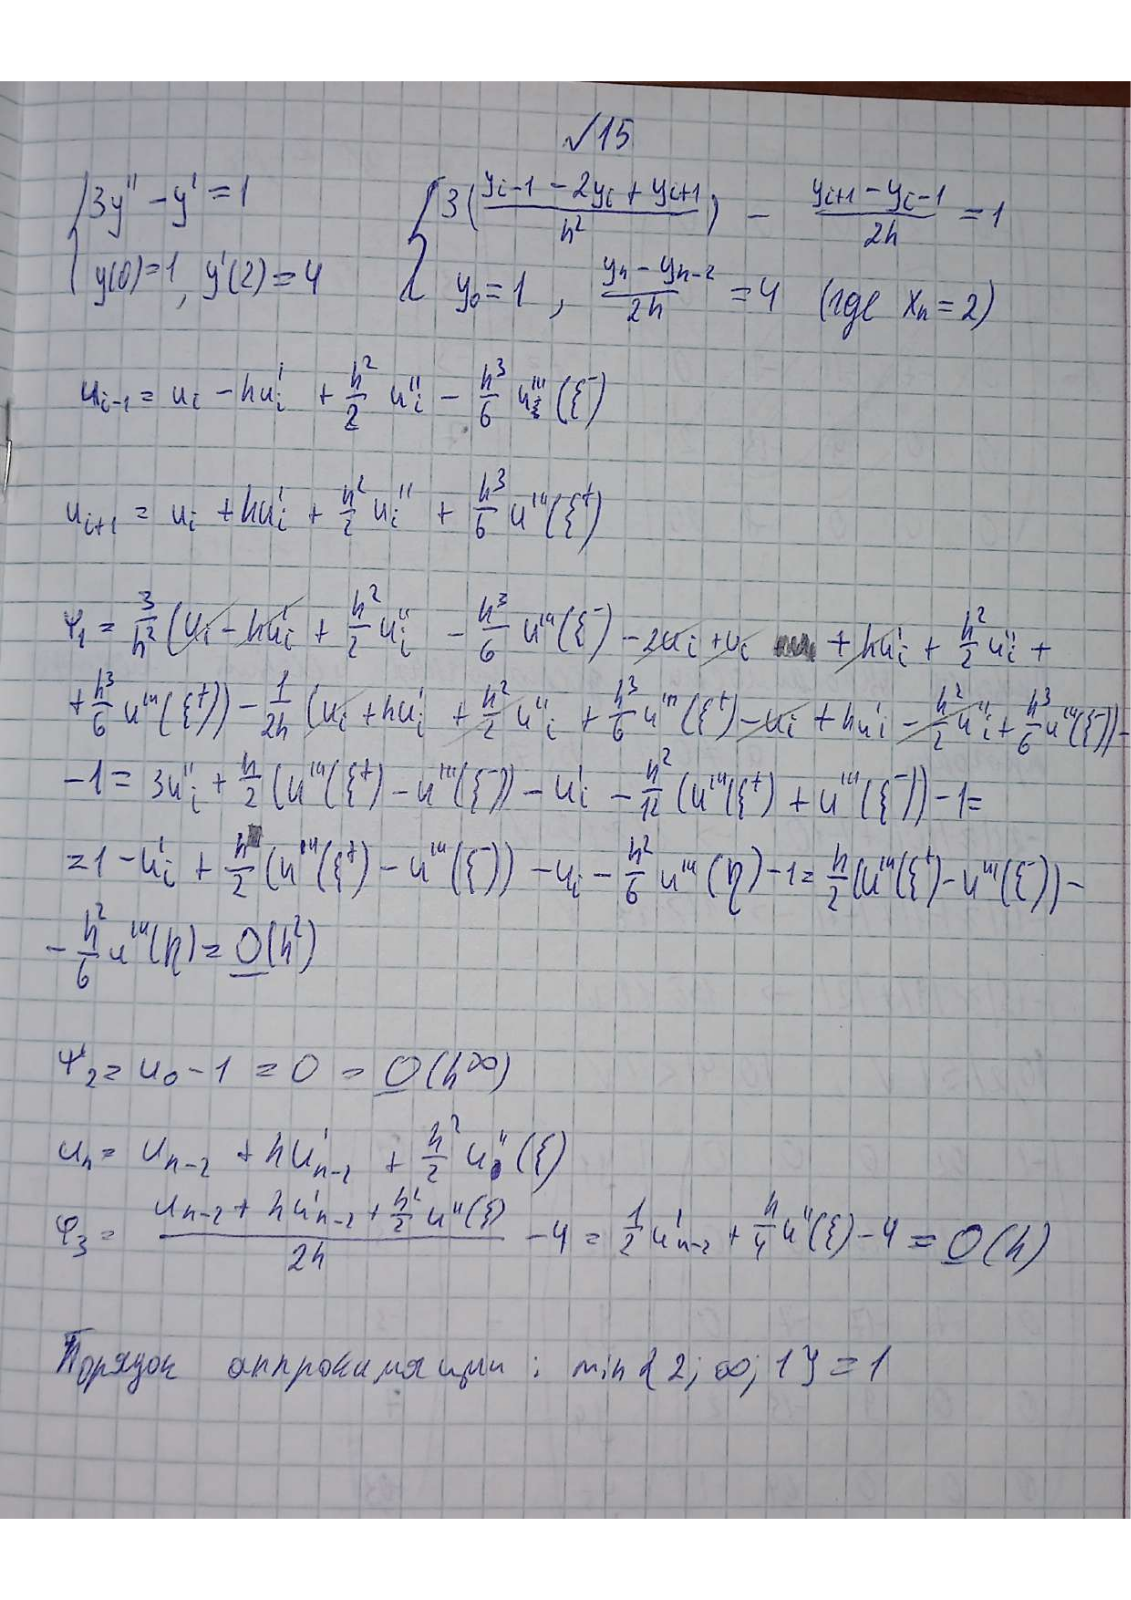 √15
{3y'' − y' = 1   {3((y_{i−1} − 2y_i + y_{i+1})/h²) − (y_{i+1} − y_{i−1})/2h = 1
y(0)=1, y'(2)=4   y₀=1, (y_n − y_{n−2})/2h = 4 (где x_n = 2)
u_{i−1} = u_i − hu_i' + h²/2 u_i'' − h³/6 u'''(ξ⁻)
u_{i+1} = u_i + hu_i' + h²/2 u_i'' + h³/6 u'''(ξ⁺)
Ψ₁ = 3/h² (u_i − hu_i' + h²/2 u_i'' − h³/6 u'''(ξ⁻) − 2u_i + u_i + hu_i' + h²/2 u_i'' +
+ h³/6 u'''(ξ⁺)) − 1/2h (u_i + hu_i' + h²/2 u_i'' + h³/6 u'''(ξ⁺) − u_i + hu_i' − h²/2 u_i'' + h³/6 u'''(ξ⁻)) −
− 1 = 3u_i'' + h/2 (u'''(ξ⁺) − u'''(ξ⁻)) − u_i' − h²/12 (u'''(ξ⁺) + u'''(ξ⁻)) − 1 =
= 1 − u_i' + h/2 (u'''(ξ⁺) − u'''(ξ⁻)) − u_i − h²/6 u'''(η) − 1 = h/2 (u'''(ξ⁺) − u'''(ξ⁻)) −
− h²/6 u'''(η) = O(h²)
Ψ₂ = u₀ − 1 = 0 = O(h^∞)
u_n = u_{n−2} + hu'_{n−2} + h²/2 u''(ξ)
Ψ₃ = (u_{n−2} + hu'_{n−2} + h²/2 u''(ξ))/2h − 4 = 1/2 u'_{n−2} + h/4 u''(ξ) − 4 = O(h)
Порядок аппроксимации: min{2; ∞; 1} = 1